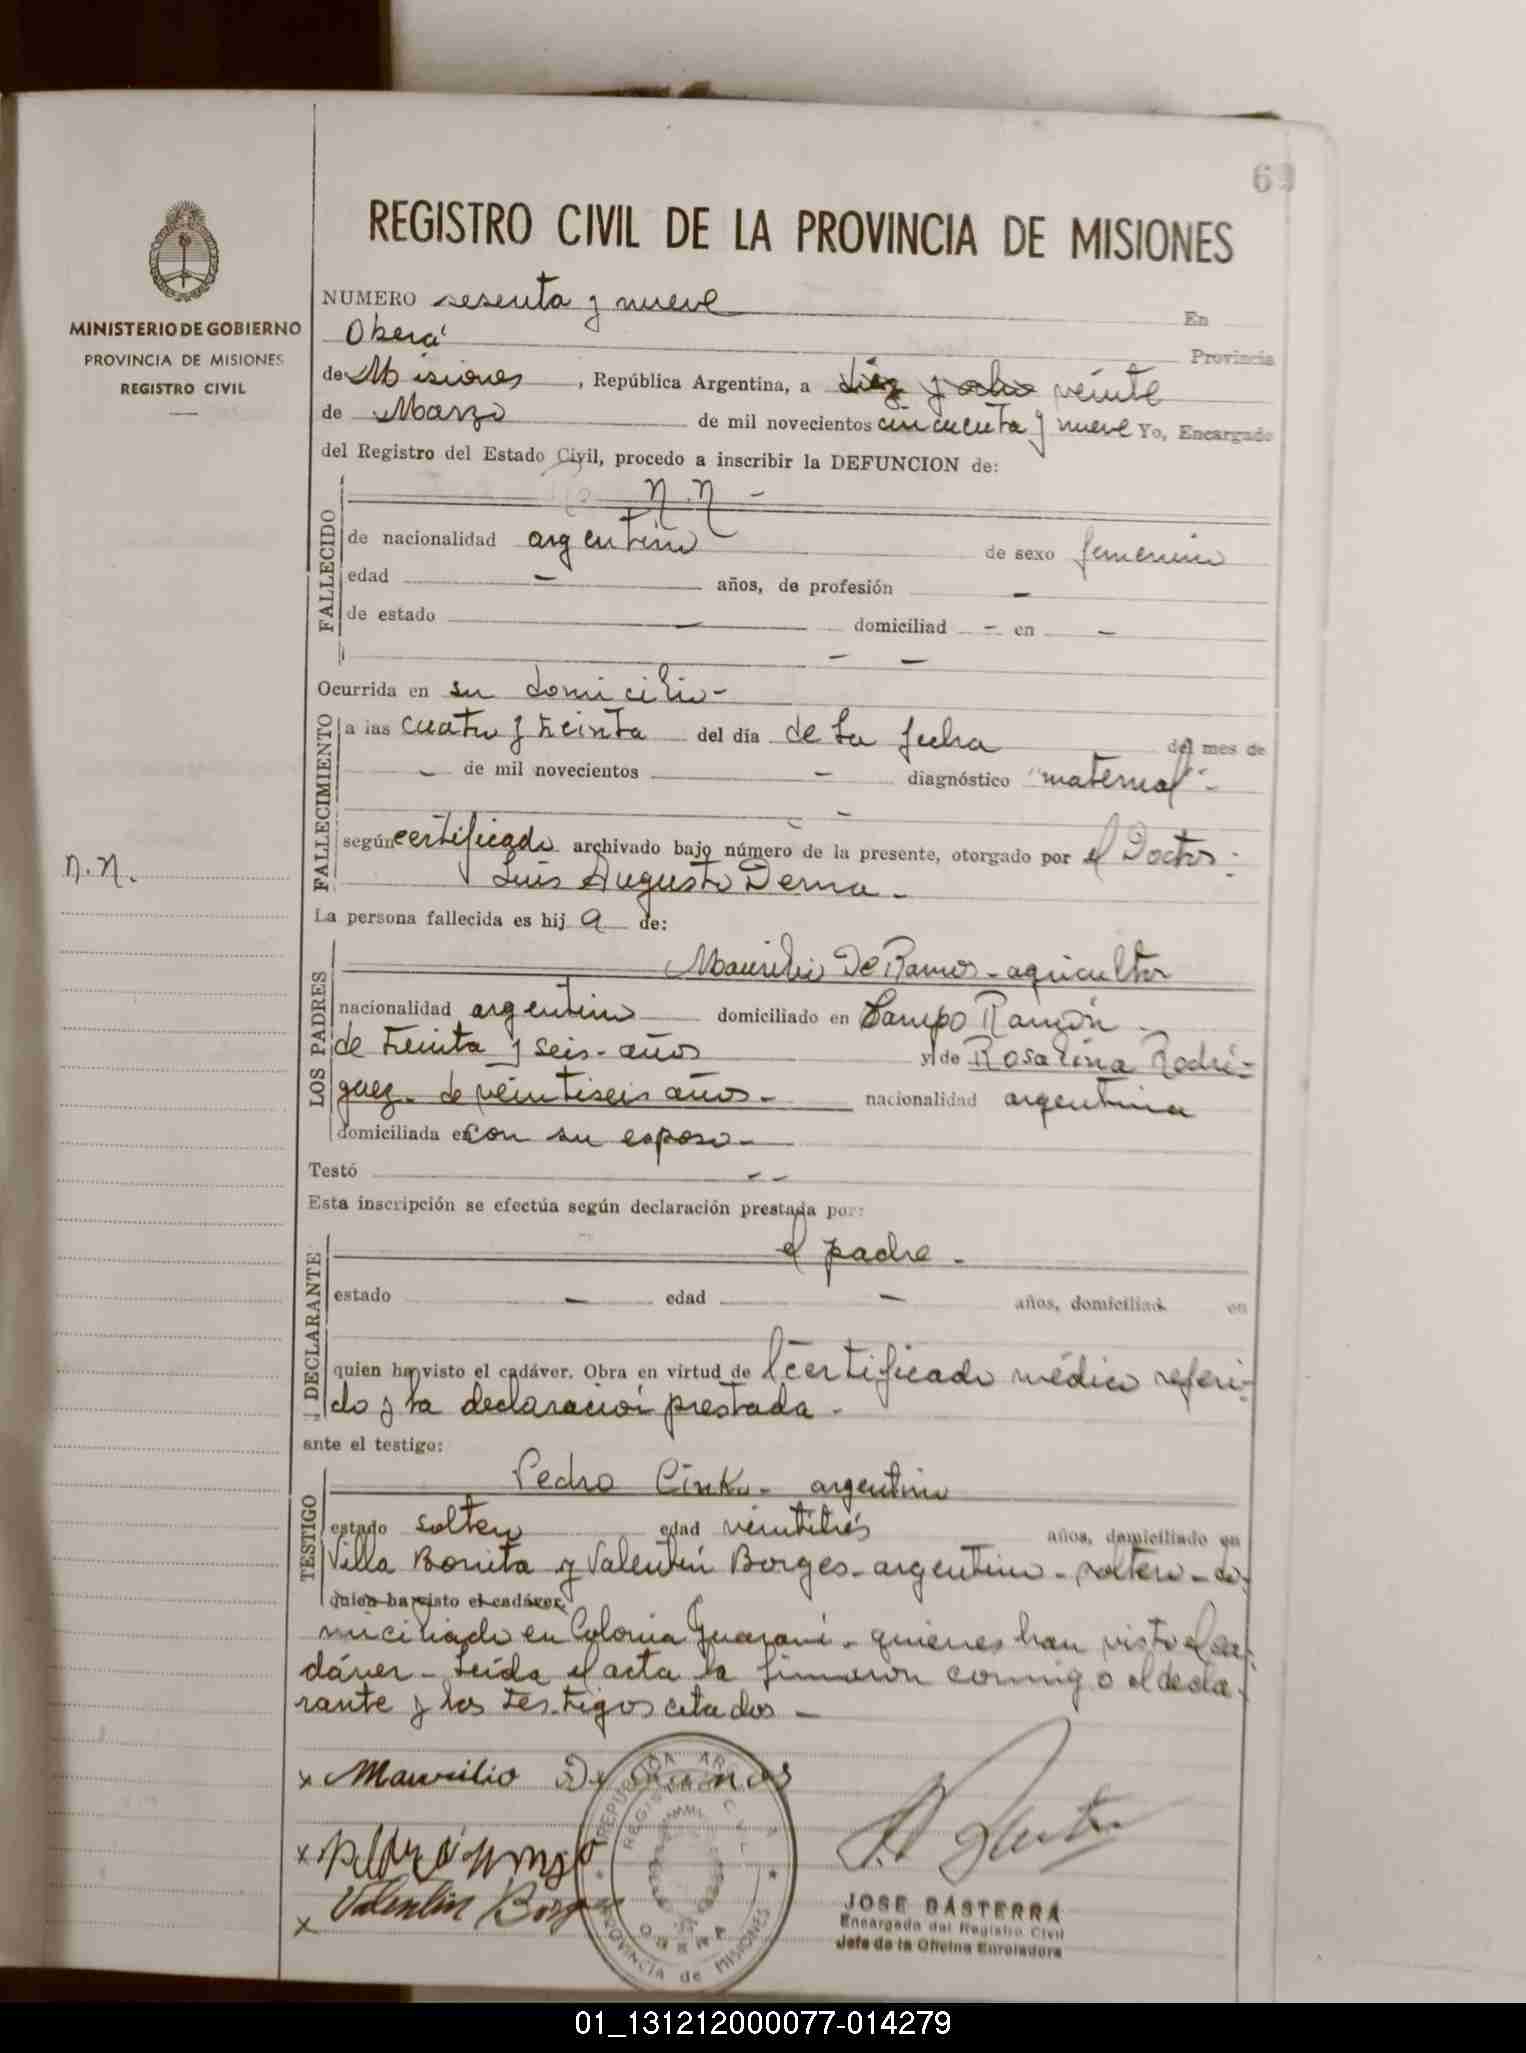 69
REGISTRO CIVIL DE LA PROVINCIA DE MISIONES
MINISTERIO DE GOBIERNO
PROVINCIA DE MISIONES
REGISTRO CIVIL
NUMERO sesenta y nueve En
Oberá Provincia
de Misiones, República Argentina, a diez y ocho veinte
de Marzo de mil novecientos cincuenta y nueve Yo, Encargado
del Registro del Estado Civil, procedo a inscribir la DEFUNCION de:
N.N -
FALLECIDO
de nacionalidad argentino de sexo femenino
edad - años, de profesión -
de estado - domiciliad - en -
- -
Ocurrida en su domicilio -
FALLECIMIENTO
a las cuatro y treinta del día de la fecha del mes de
- de mil novecientos - diagnóstico "maternal" -
-
según certificado archivado bajo número de la presente, otorgado por el Doctor:
Luis Augusto Derna -
N.N.
La persona fallecida es hij a de:
LOS PADRES
Maurilio De Ramos - agricultor
nacionalidad argentino domiciliado en Campo Ramón -
de treinta y seis - años y de Rosalina Rodri-
guez - de veintiseis años - nacionalidad argentina
domiciliada en con su esposo -
Testó - -
Esta inscripción se efectúa según declaración prestada por:
DECLARANTE
el padre -
estado - edad - años, domiciliad en
quien ha visto el cadáver. Obra en virtud de l certificado médico referi-
do y la declaración prestada -
ante el testigo:
TESTIGO
Pedro Cinko - argentino
estado soltero edad veintitrés años, domiciliado en
Villa Bonita y Valentín Borges - argentino - soltero - do-
quien ha visto el cadáver.
miciliado en Colonia Guaraní - quienes han visto el ca-
dáver - Leída el acta la firmaron conmigo el decla-
rante y los testigos citados -
x Maurilio De Ramos
x
x Valentin Borges
REPUBLICA ARGENTINA
REGISTRO CIVIL
OBERA
PROVINCIA de MISIONES
JOSE BASTERRA
Encargado del Registro Civil
Jefe de la Oficina Enroladora
01_131212000077-014279